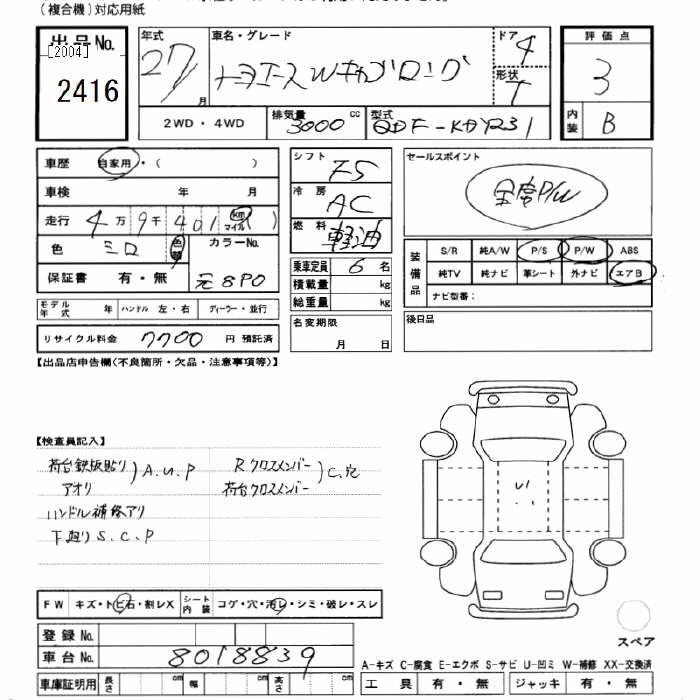 (複合機)対応用紙
出品No. [2004] 2416
年式 27 月
車名・グレード トヨエースWキャブロング
ドア 4
形状 T
評価点 3
内装 B
2WD・4WD
排気量 3000 cc
型式 QDF-KDY231
車歴 自家用・( )
車検 年 月
走行 4万9千401 km マイル ( )
色 シロ 色替
カラーNo. 元 8P0
保証書 有・無
シフト F5
冷房 AC
燃料 軽油
乗車定員 6 名
積載量 kg
総重量 kg
名変期限 月 日
セールスポイント
全席P/W
装備品
S/R 純A/W P/S P/W ABS
純TV 純ナビ 革シート 外ナビ エアB
ナビ型番:
後日品
モデル年式 年 ハンドル 左・右 ディーラー・並行
リサイクル料金 7700 円 預託済
【出品店申告欄(不良箇所・欠品・注意事項等)】
【検査員記入】
荷台鉄板貼り
アオリ ) A.U.P
Rクロスメンバー
荷台クロスメンバー ) C.穴
ハンドル補修アリ
下廻り S.C.P
U
FW キズ・トビ石・割レX
シート内装 コゲ・穴・汚レ・シミ・破レ・スレ
登録No.
車台No. 8018839
車庫証明用 長さ cm 幅 cm 高さ cm
スペア
A-キズ C-腐食 E-エクボ S-サビ U-凹ミ W-補修 XX-交換済
工具 有・無 ジャッキ 有・無